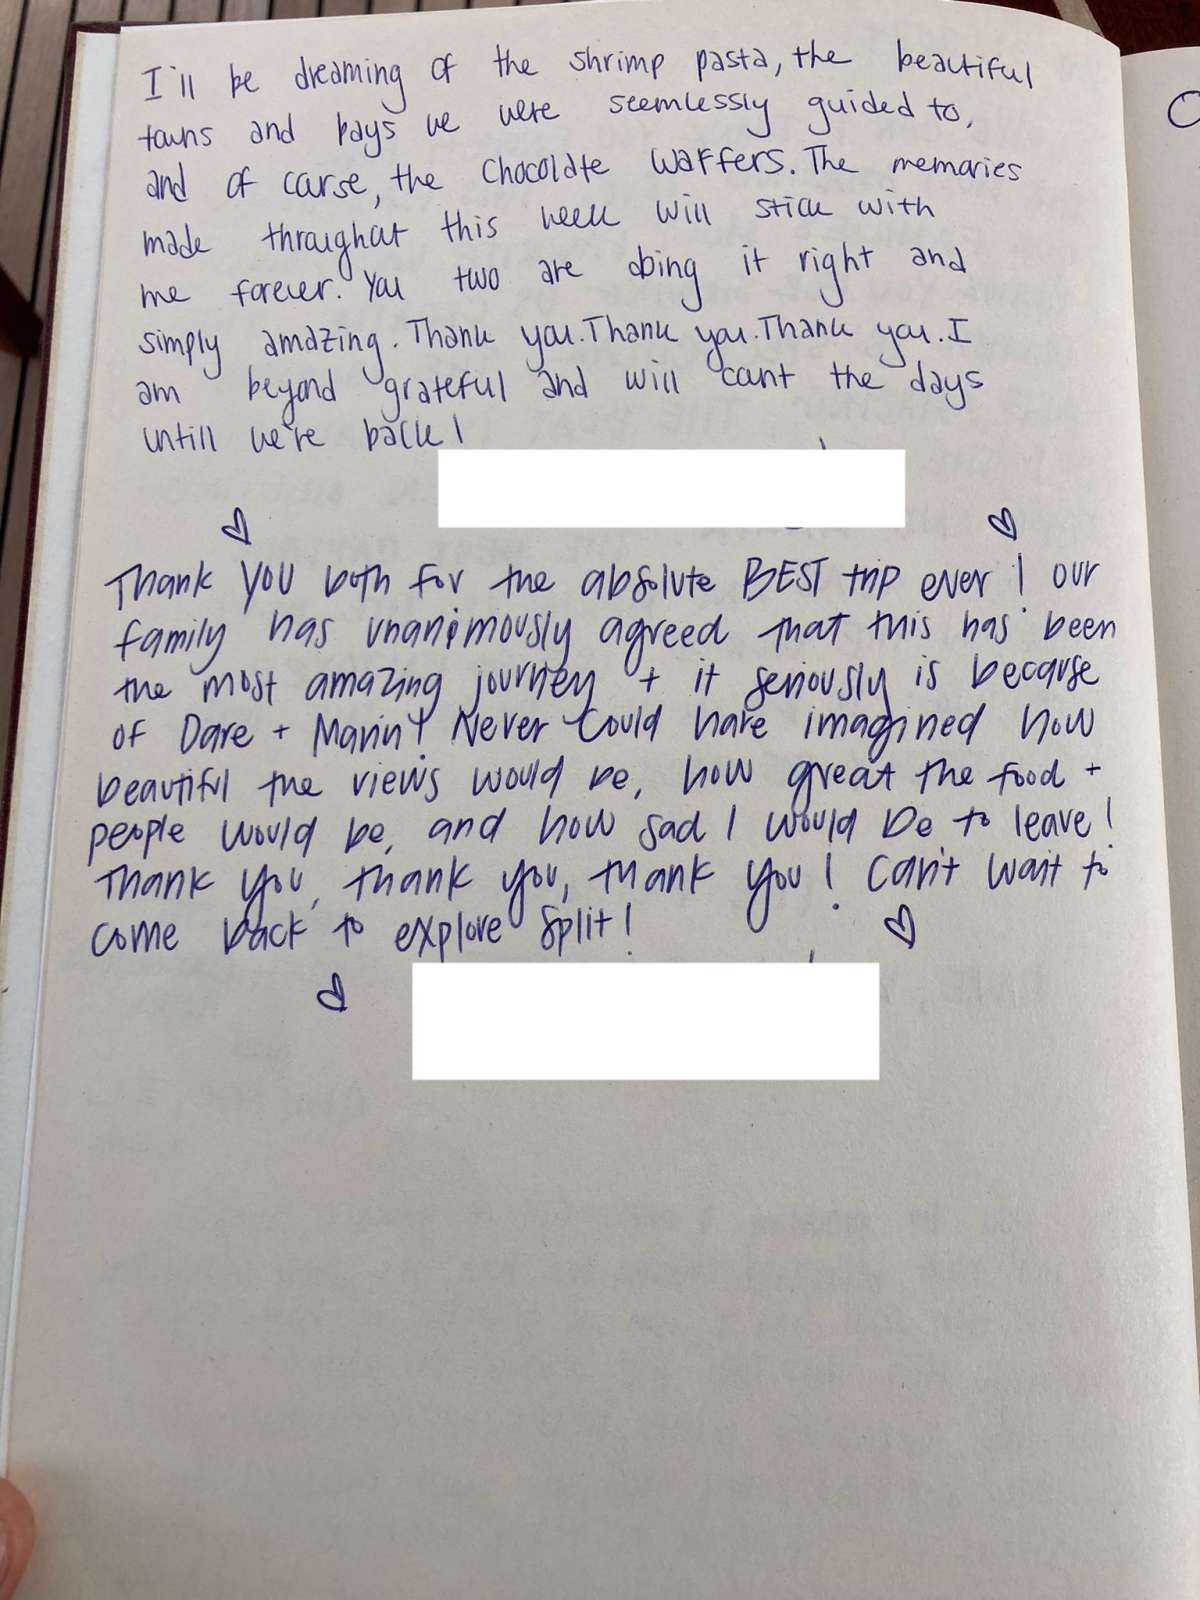 I'll be dreaming of the shrimp pasta, the beautiful
towns and bays we were seemlessly guided to,
and of course, the chocolate waffers. The memories
made throughout this week will stick with
me forever. You two are doing it right and
simply amazing. Thank you. Thank you. Thank you. I
am beyond grateful and will count the days
untill we're back!
Thank you both for the absolute BEST trip ever! our
family has unanimously agreed that this has been
the most amazing journey + it seriously is because
of Dare + Marin! Never could have imagined how
beautiful the views would be, how great the food +
people would be, and how sad I would be to leave!
Thank you, thank you, thank you! Can't wait to
come back to explore Split!